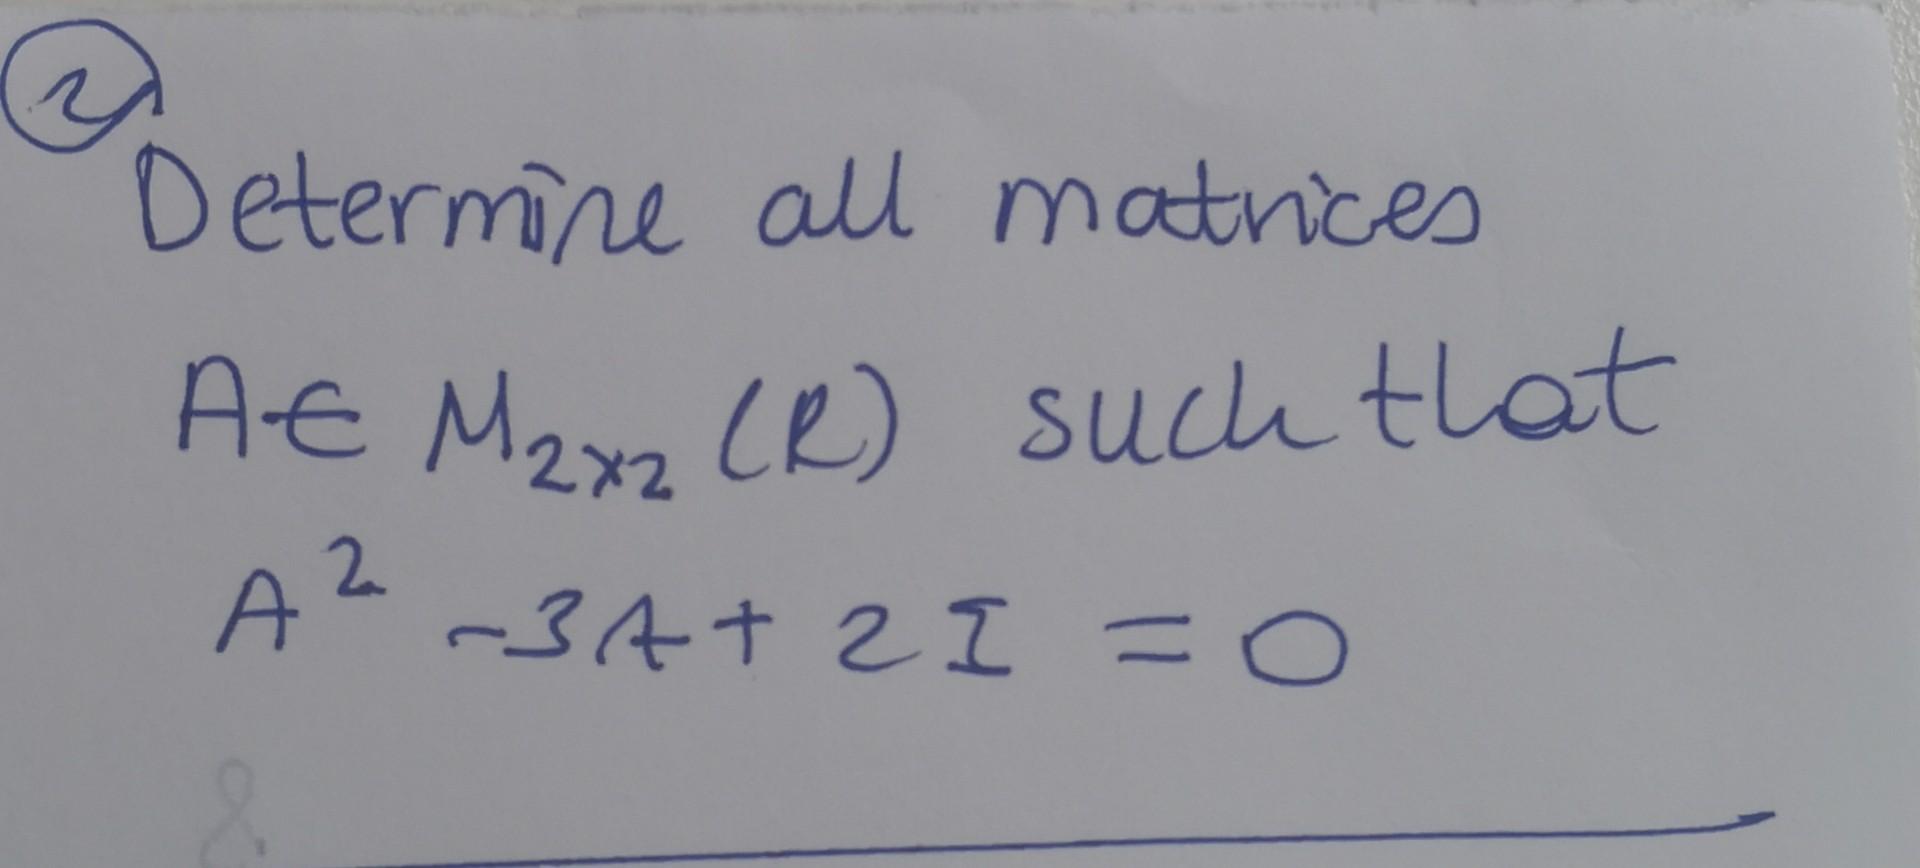 2
Determine all matrices
A ∈ M₂ₓ₂ (R) such that
A² - 3A + 2I = 0